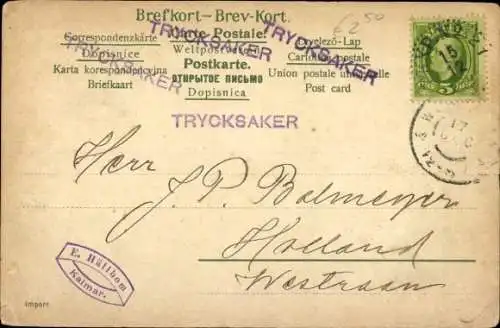 Brefkort—Brev-Kort.
Correspondenzkarte Carte Postale. Levelezö-Lap
Dopisnice Weltpostverein Cartolina postale
Karta korespondencyjna Postkarte. Union postale universelle
Briefkaart ОТКРЫТОЕ ПИСЬМО Post card
Dopisnica
TRYCKSAKER
TRYCKSAKER
TRYCKSAKER
TRYCKSAKER
€ 2 50
5
15
17
Herr
J. P. Balmeyer
Holland
Westraan
E. Hüllbom
Kalmar.
Import